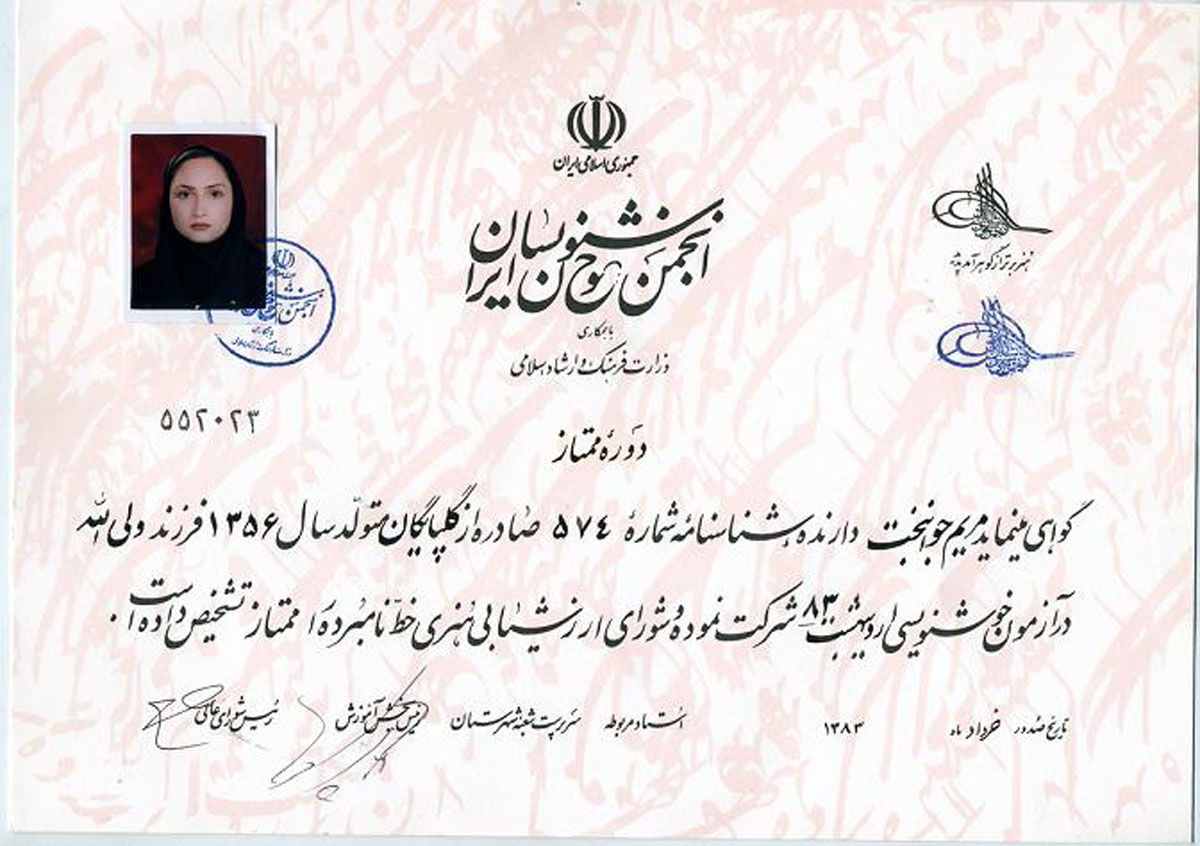 جمهوری اسلامی ایران
انجمن خوشنویسان ایران
با همکاری
وزارت فرهنگ و ارشاد اسلامی
هنر برتر از گوهر آمد پدید
۵۵۲۰۲۳
دورهٔ ممتاز
گواهی مینماید مریم جوانبخت دارنده شناسنامه شمارهٔ ۵۷۴ صادره از گلپایگان متولّد سال ۱۳۵۶ فرزند ولی الله
در آزمون خوشنویسی اردیبهشت ۸۳ شرکت نموده و شورای ارزشیابی هنری خطّ نامبرده را ممتاز تشخیص داده است.
تاریخ صدور خرداد ماه ۱۳۸۳ استاد مربوطه سرپرست شعبهٔ شهرستان رئیس بخش آموزش رئیس شورای عالی